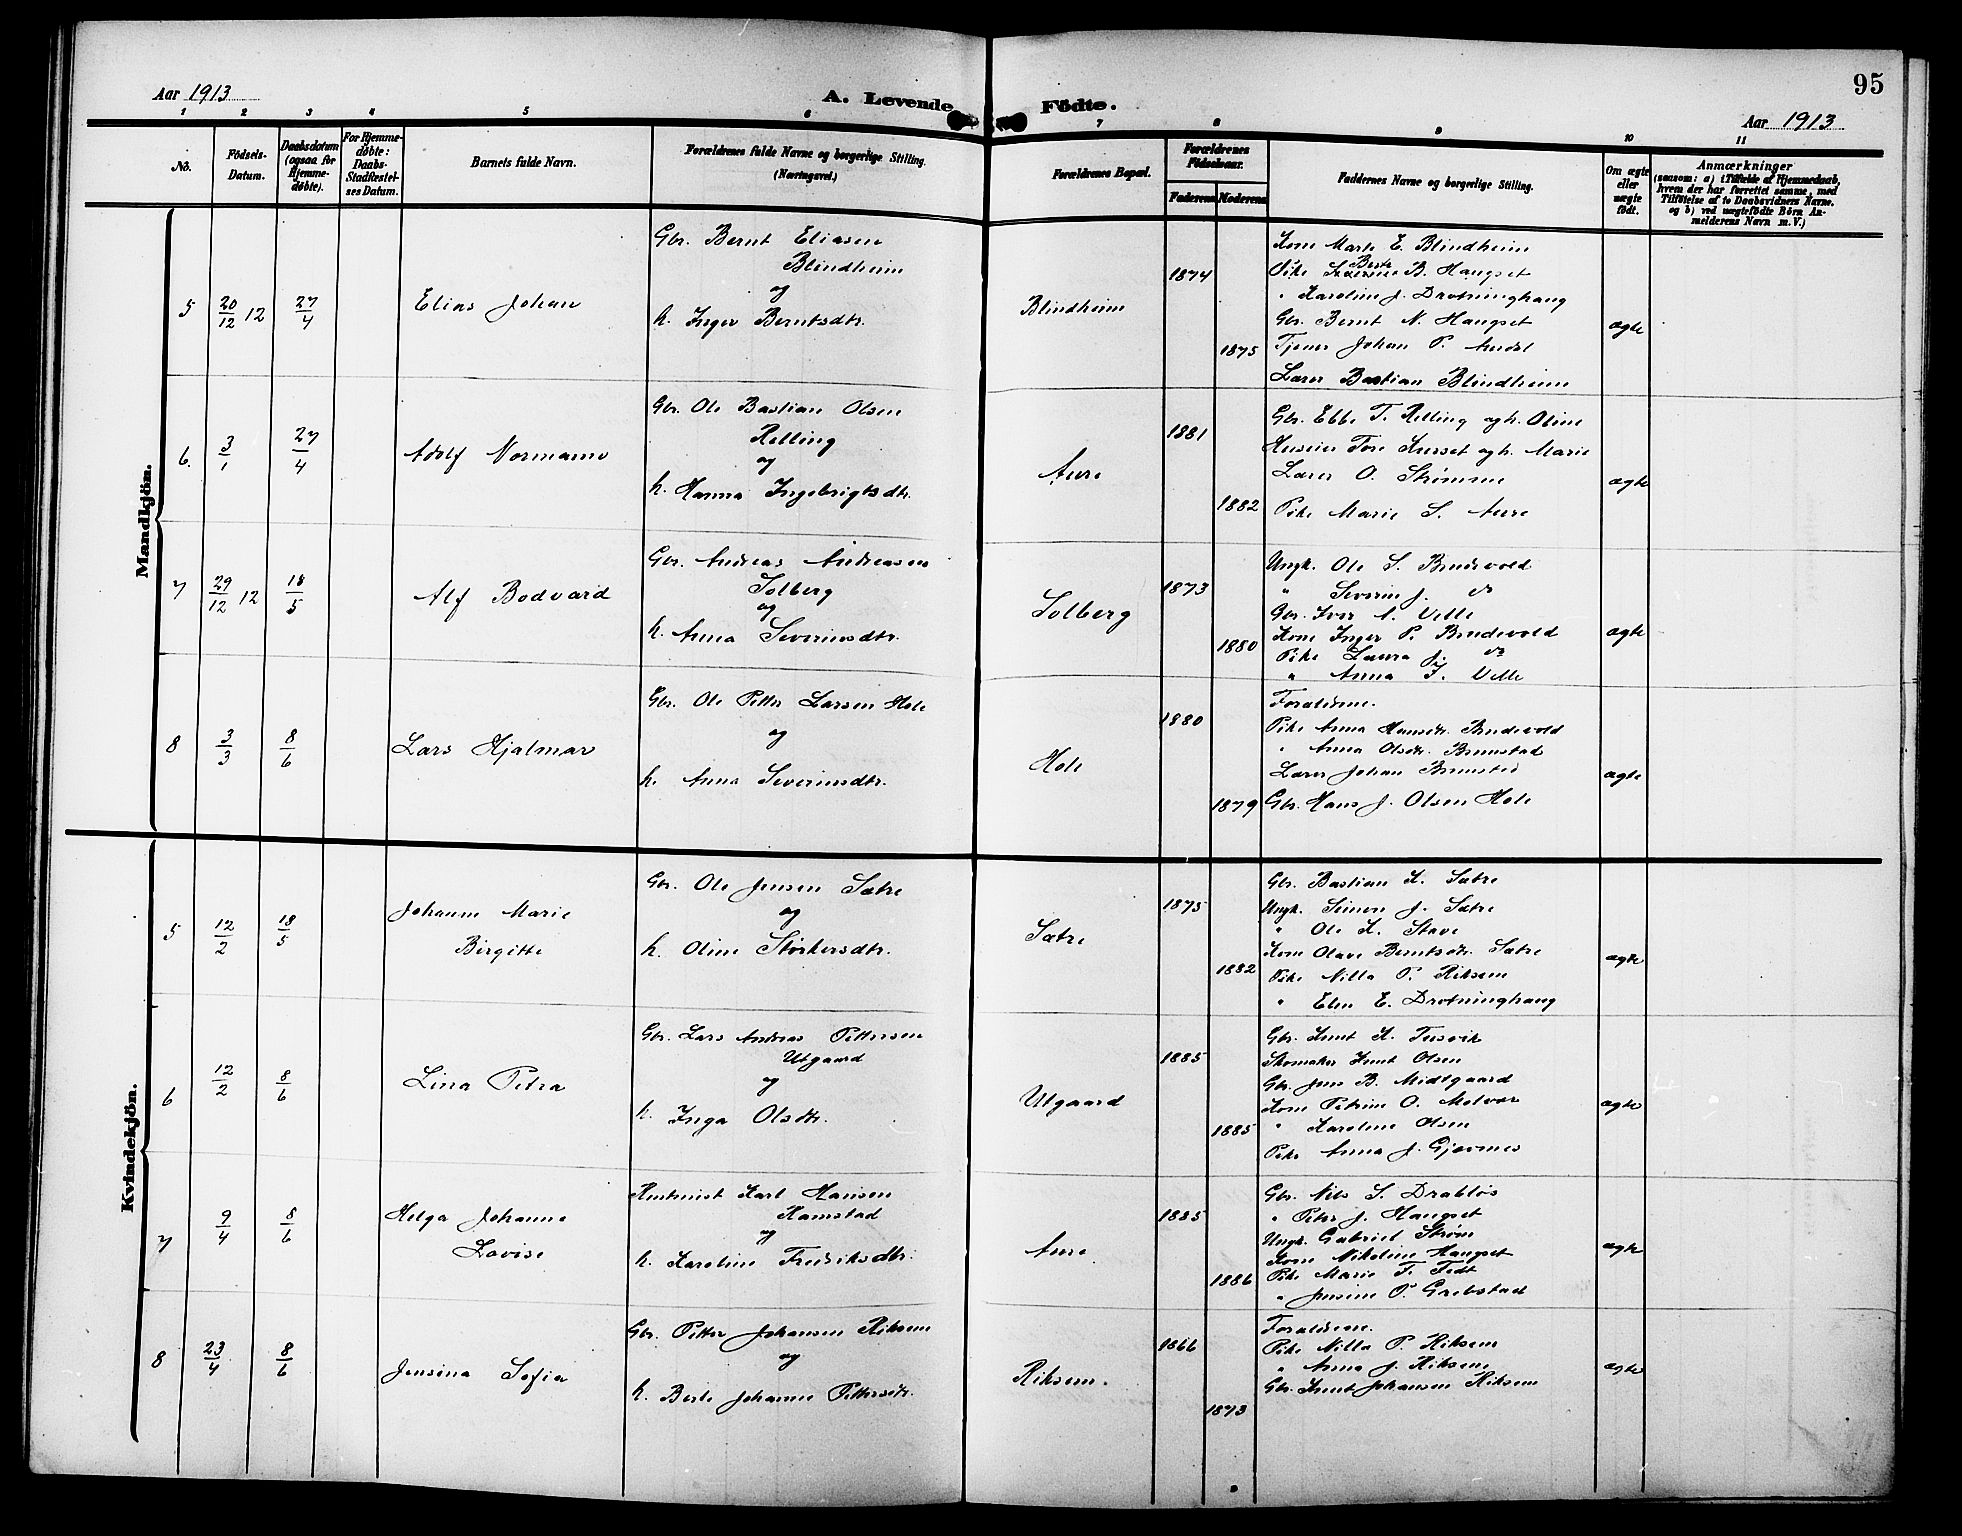 95
Aar 1913
A. Levende Födte.
Aar 1913
1 2 3 4 5 6 7 8 9 10 11
No.
Födsels-Datum.
Daabsdatum (ogsaa for Hjemme-døbte).
For Hjemme-døbte: Daabs-Stadfæstel-ses Datum.
Barnets fulde Navn.
Forældrenes fulde Navne og borgerlige Stilling.
(Næringsvei.)
Forældrenes Bopæl.
Forældrenes Födselsaar.
Faderens Moderens
Faddernes Navne og borgerlige Stilling.
Om ægte eller uægte födt.
Anmærkninger
(saasom: a) i Tilfælde af Hjemmedaab,
hvem der har forrettet samme, med
Tilföielse af to Daabsvidners Navne.
og b) ved uægtefödte Börn An-
melderens Navn m. V.)
Mandkjön.
5 20/12 12 27/4 Elias Johan
Gbr. Bernt Eliasen
Blindheim
og
h. Inger Berntsdtr.
Blindheim 1874 1875
Kone Marte E. Blindheim
Pike Beate B. Haugset
" Karoline J. Drotninghaug
Gbr. Bernt N. Haugset
Tjener Johan P. Aurdal
Lærer Bastian Blindheim
ægte
6. 3/1 27/4 Adolf Normann
Gbr. Ole Bastian Olsen
Relling
og
h. Hanna Ingebrigtsdtr.
Aure 1881 1882
Gbr. Ebbe T. Relling og h. Oline
Huseier Tore Kurset og h. Marie
Lærer O. Strømme
Pike Marie S. Aure
ægte
7 29/12 12 18/5 Alf Bodvard
Gbr. Andreas Andreasen
Solberg
og
h. Anna Severinsdtr.
Solberg 1873 1880
Ungk. Ole S. Brudevold
" Severin J. do
Gbr. Iver A. Velle
Kone Inger P. Brudevold
Pike Laura J. do
" Anna I. Velle
ægte
8 3/3 8/6 Lars Hjalmar
Gbr. Ole Petter Larsen Hole
og
h. Anna Severinsdtr.
Hole 1880 1879
Forældrene.
Pike Anna Hansdtr. Brudevold
" Anna Olsdtr. Brunstad
Lærer Johan Brunstad
Gbr. Hans J. Olsen Hole
ægte
Kvindekjön.
5 12/2 18/5 Johanne Marie
Birgitte
Gbr. Ole Jensen Sætre
og
h. Oline Størkersdtr.
Sætre 1875 1882
Gbr. Bastian K. Sætre
Ungk. Simon J. Sætre
" Ole K. Stave
Kone Olave Berntsdtr. Sætre
Pike Nilla P. Riksem
" Elen E. Drotninghaug
ægte
6 12/2 8/6 Lina Petra
Gbr. Lars Andreas Pettersen
Utgaard
og
h. Inga Olsdtr.
Utgaard 1885 1885
Gbr. Knut K. Tusvik
Skomaker Knut Olsen
Gbr. Jens B. Midtgaard
Kone Petrine O. Melvær
" Karoline Olsen
Pike Anna J. Gjævenes
ægte
7 9/4 8/6 Helga Johanne
Lovise
Karl Hansen
Ramstad
og
h. Karoline Fredriksdtr.
Aure 1885 1886
Gbr. Nils S. Drabløs
" Peter J. Haugset
Ungk. Gabriel Strøm
Kone Nikoline Haugset
Pike Marie T. Fedt
" Jensine P. Grebstad
ægte
8 23/4 8/6 Jensina Sofie
Gbr. Petter Johansen Riksem
og
h. Berte Johanne Pettersdtr.
Riksem. 1866 1873
Forældrene.
Pike Nilla P. Riksem
" Anna J. Riksem
Gbr. Knut Johansen Riksem
ægte